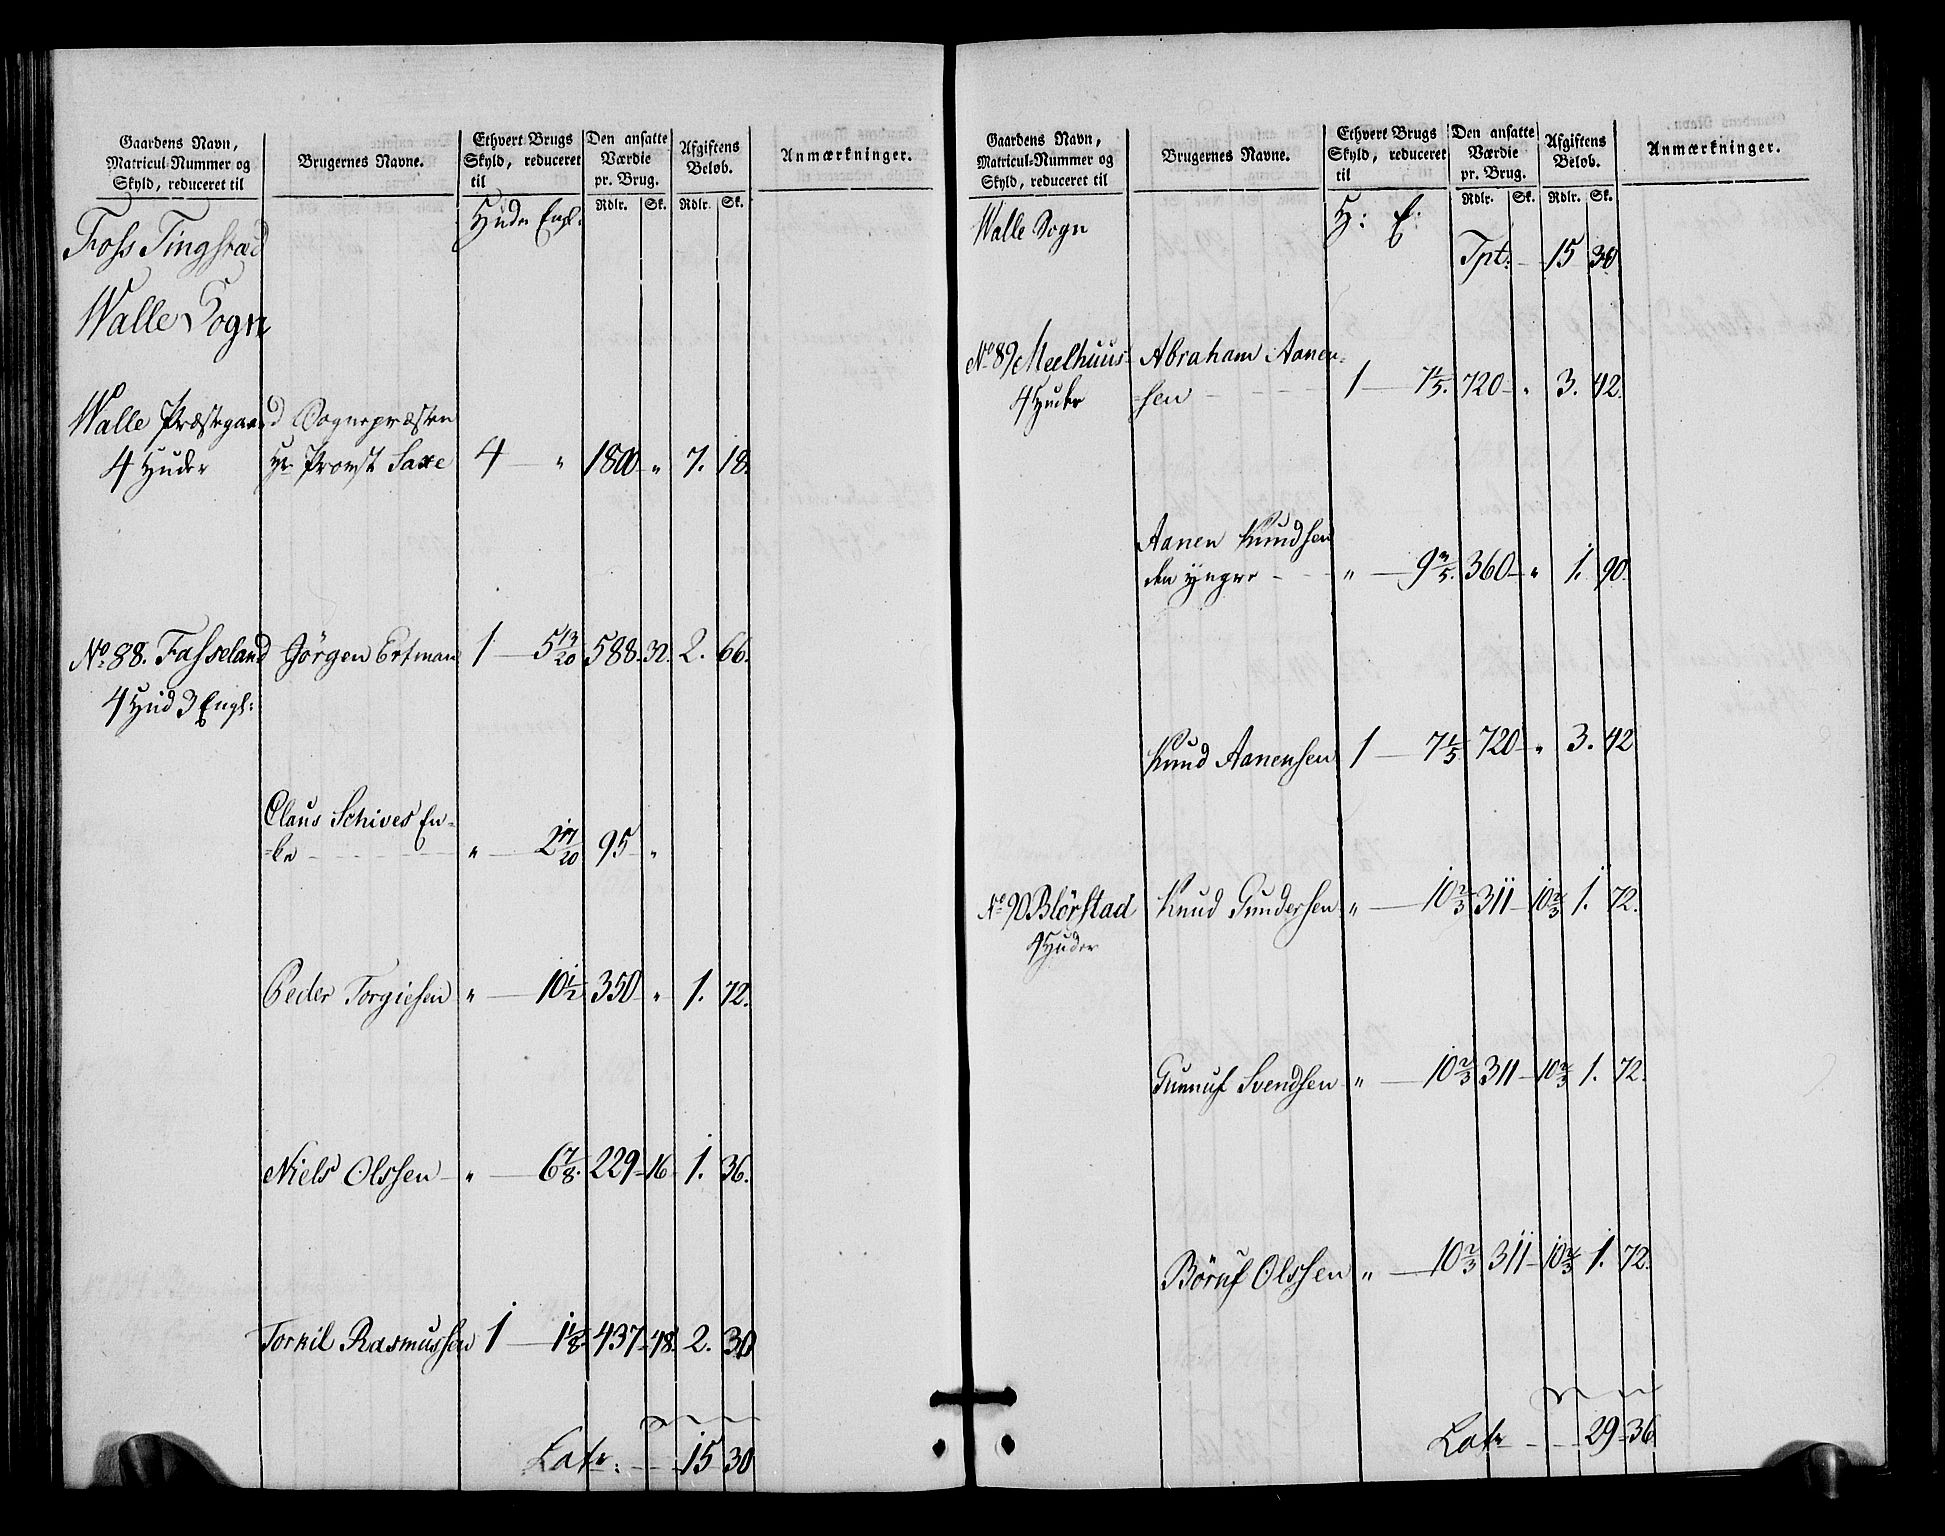 Gaardens Navn, Matricul-Nummer og Skyld, reduceret til | Brugernes Navne. | Ethvert Brugs Skyld, reduceret til | Den ansatte Værdie pr. Brug. | Afgiftens Beløb. | Anmærkninger.
Rdlr. Sk. Rdlr. Sk.
Huder Engl:
Foss Tingstæd
Walle Sogn
Walle Præstegaard Sognepræsten
4 Huder Hr Provst Saxe 4 — " 1800 " 7. 18.
No 88. Fasseland Jörgen Ertman 1 — 5 13/20 588. 32. 2. 66.
4 Hud 3 Engl:
Claus Schives En-
-ke " — 2 17/20 95 "
Peder Torgiesen " — 10 1/2 350 " 1. 72.
Niels Olssen " — 6 7/8. 229 16 1. 36.
Torkil Rasmussen 1 — 1 1/8 437 48. 2. 30
Latr: 15 30
Gaardens Navn, Matricul-Nummer og Skyld, reduceret til | Brugernes Navne. | Ethvert Brugs Skyld, reduceret til | Den ansatte Værdie pr. Brug. | Afgiftens Beløb. | Anmærkninger.
Rdlr. Sk. Rdlr. Sk.
Walle Sogn H: E:
Tpt: 15 30
No 89 Meelhuus Abraham Aanen-
4 Huder -sen 1 — 7 1/5. 720 " 3. 42.
Aanen Knudsen
den yngre " — 9 3/5. 360 " 1. 90.
Knud Aanensen 1 — 7 1/5 720 " 3. 42
No 90 Blörstad Knud Gundersen " — 10 2/3 311 10 2/3 1. 72.
4 Huder
Gunnuf Svendsen " — 10 2/3 311 10 2/3 1. 72.
Böruf Olssen " — 10 2/3 311 10 2/3 1. 72.
Latr 29 36